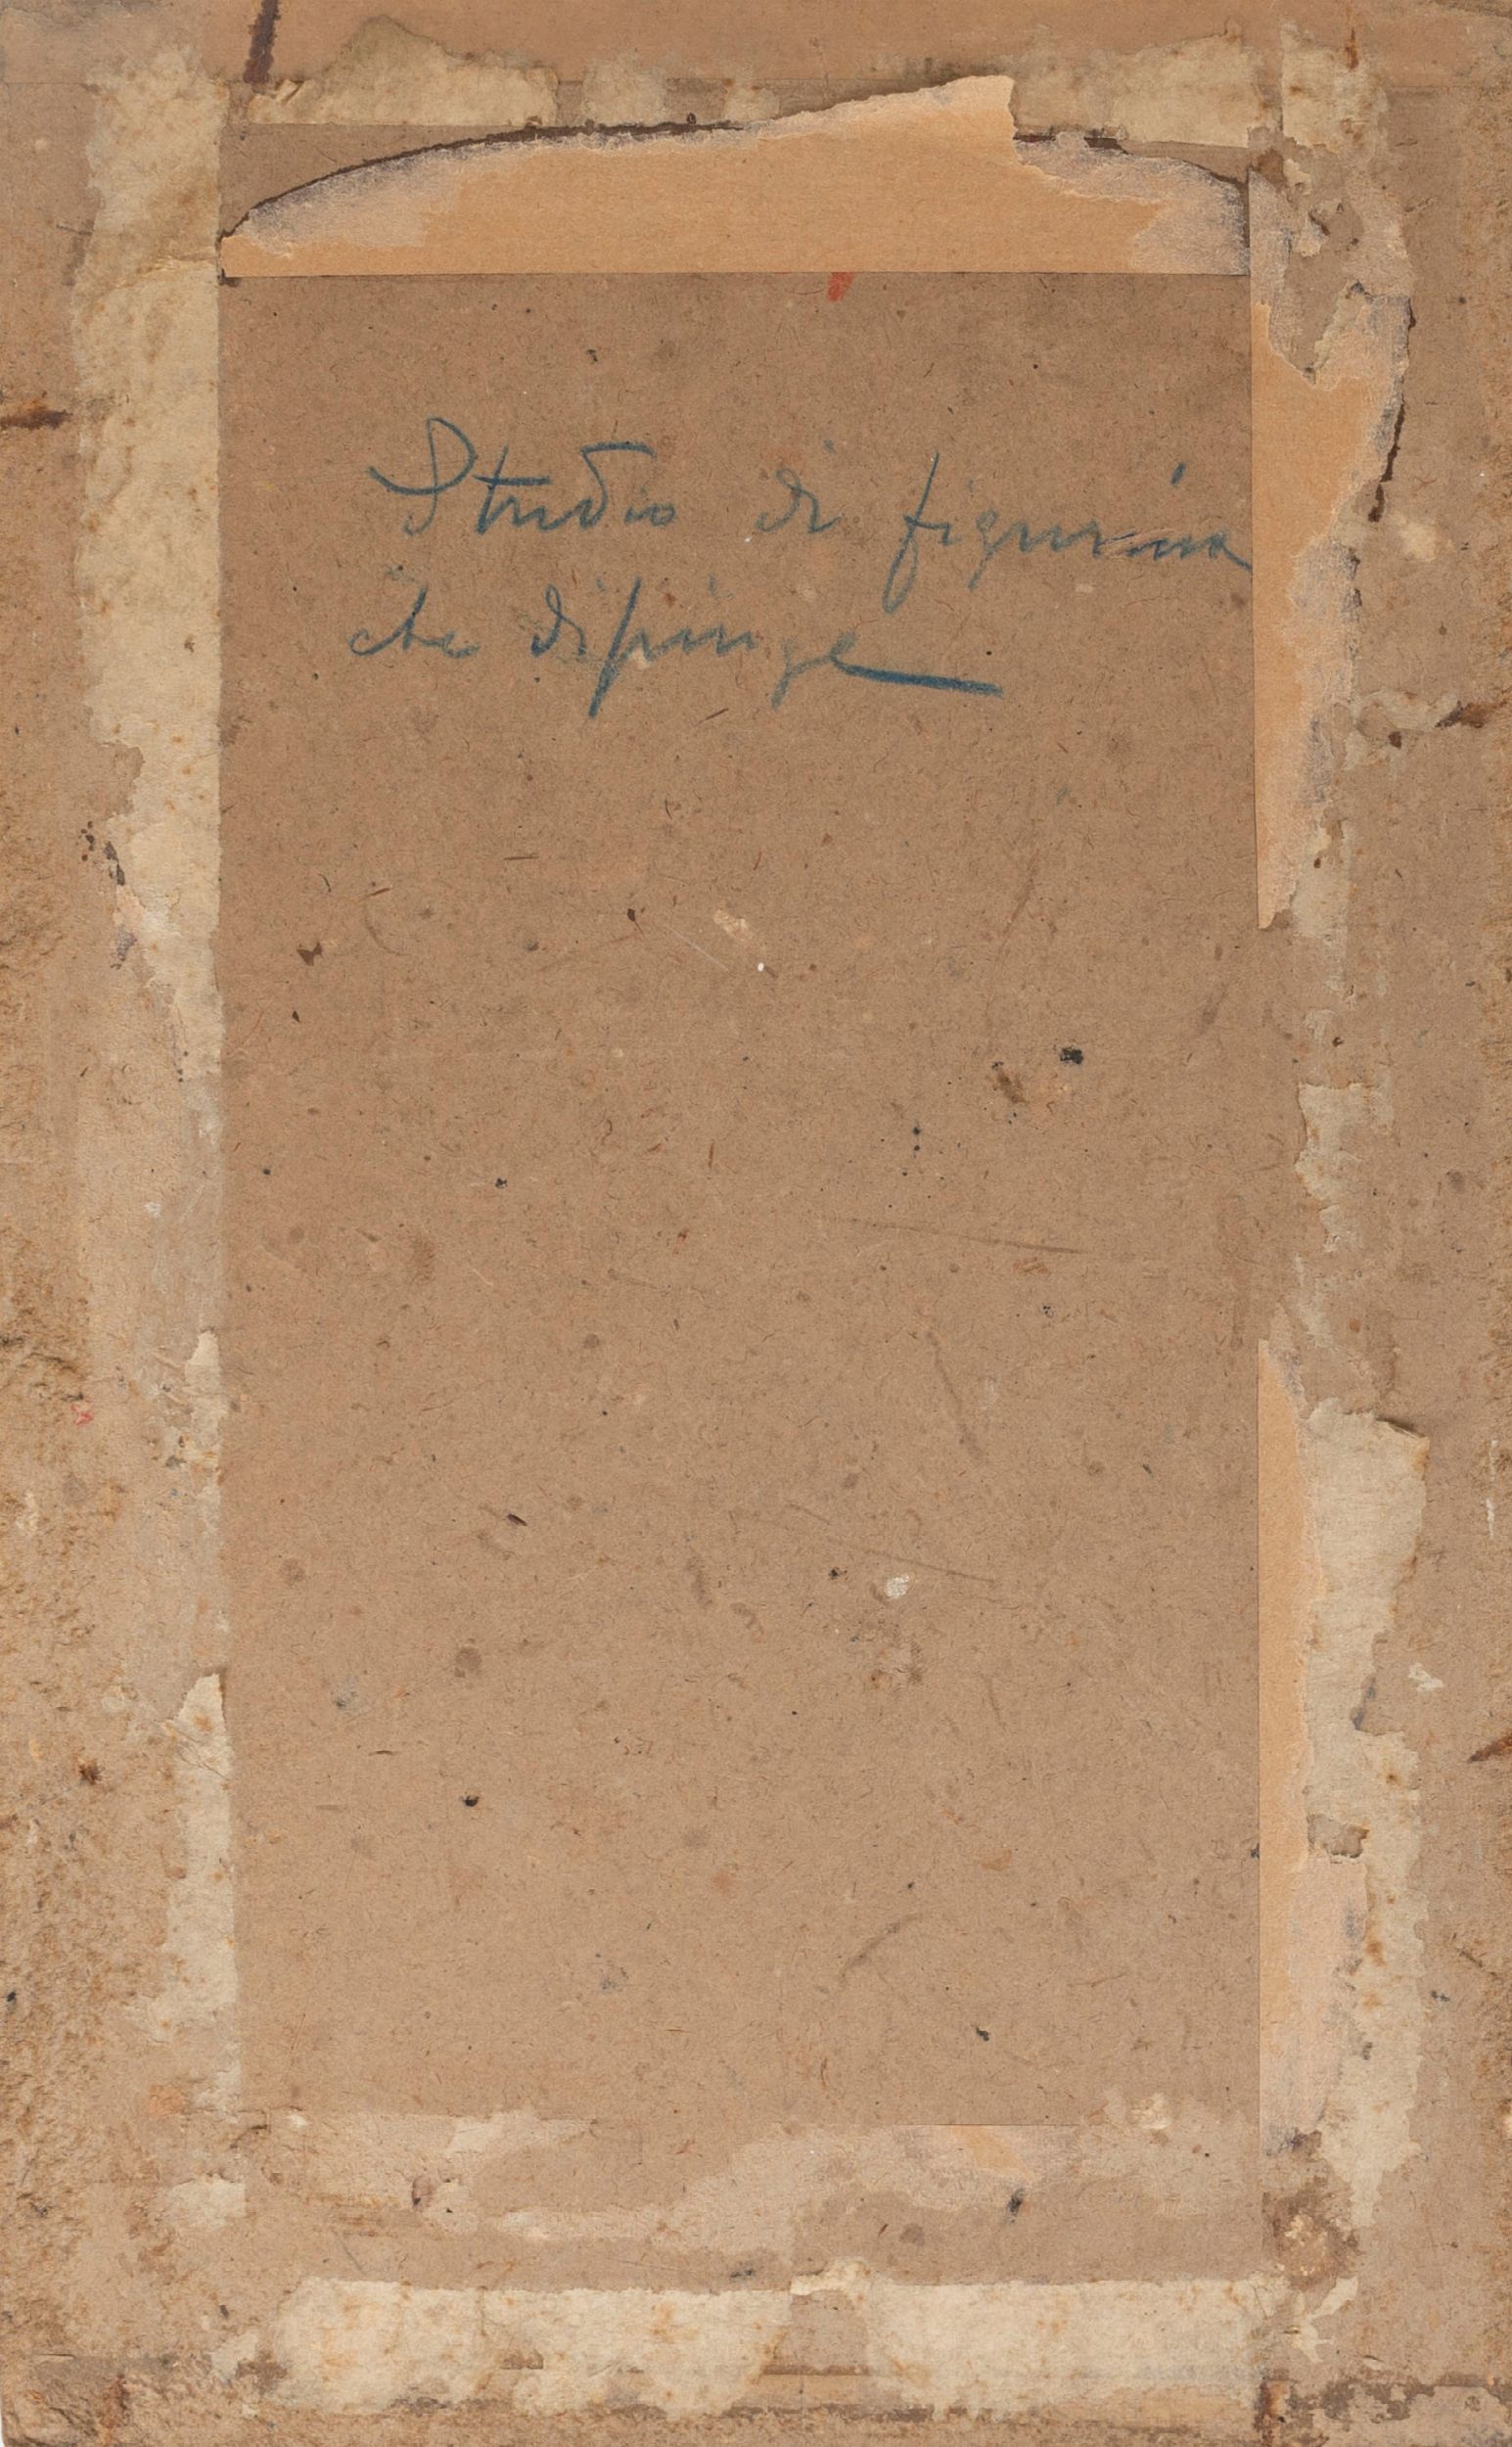 Studio di figurina
che dipinge